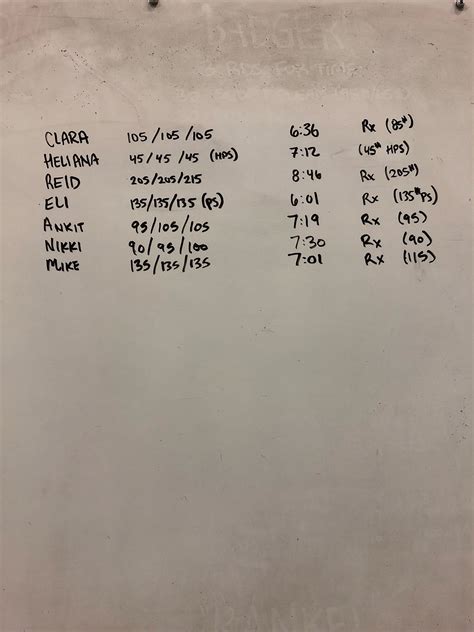 CLARA 105/105/105 6:36 Rx (85#)
HELIANA 45/45/45 (HPS) 7:12 (45# HPS)
REID 205/205/215 8:46 Rx (205#)
ELI 135/135/135 (PS) 6:01 Rx (135#PS)
ANKIT 95/105/105 7:19 Rx (95)
NIKKI 90/95/100 7:30 Rx (90)
MIKE 135/135/135 7:01 Rx (115)